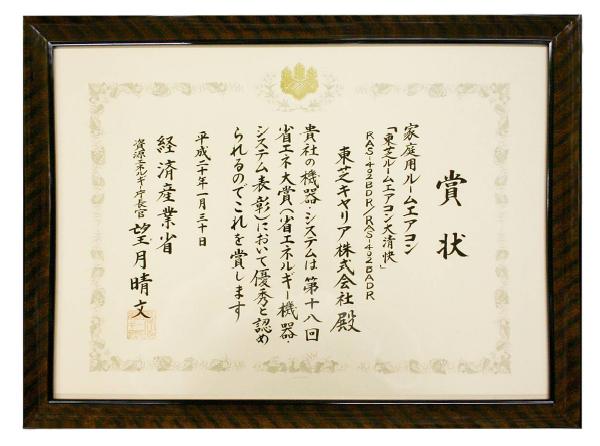 賞状
家庭用ルームエアコン
「東芝ルームエアコン大清快」
RAS-402BDR/RAS-402BADR
東芝キャリア株式会社 殿
貴社の機器・システムは第十八回
省エネ大賞(省エネルギー機器・
システム表彰)において優秀と認め
られるのでこれを賞します
平成二十年一月三十日
経済産業省
資源エネルギー庁長官 望月晴文